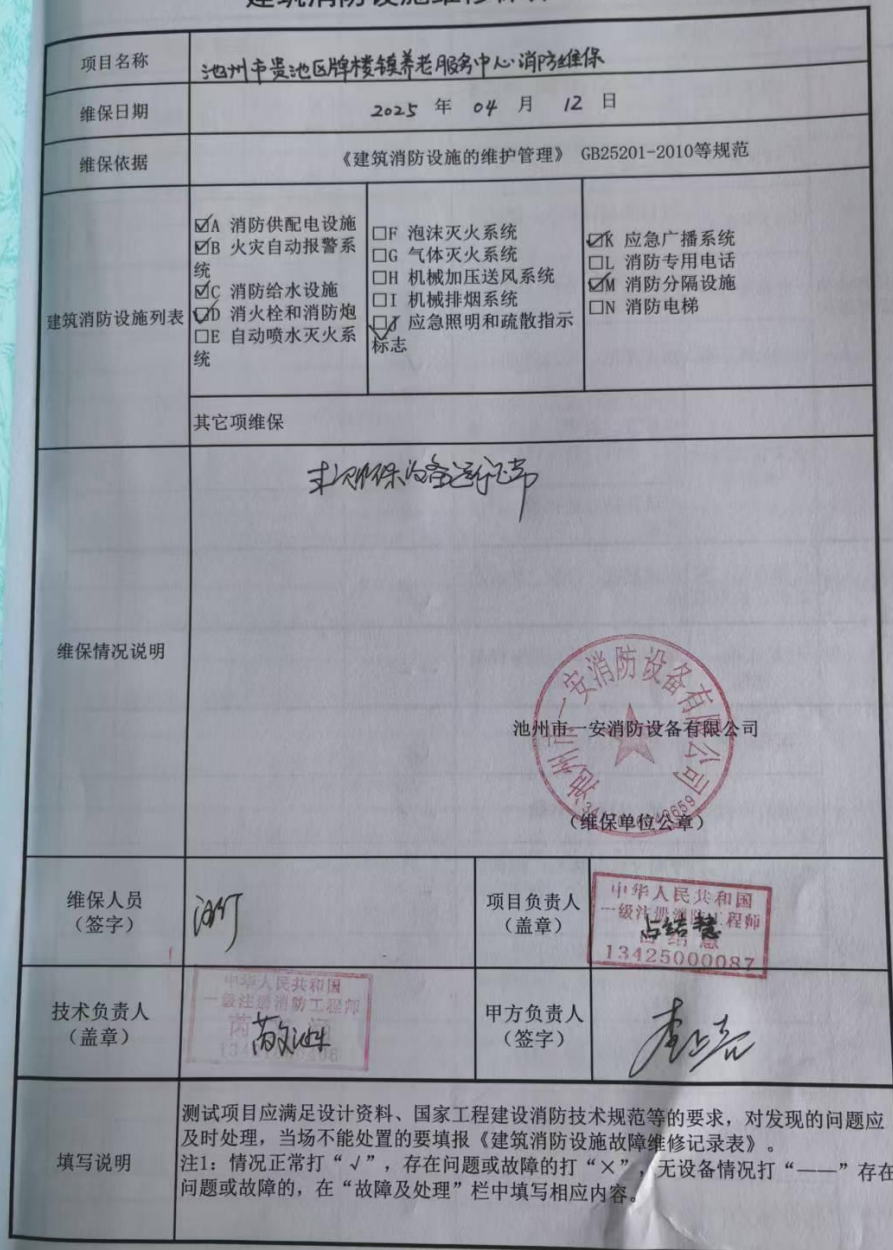 项目名称
池州市贵池区牌楼镇养老服务中心消防维保
维保日期
2025 年 04 月 12 日
维保依据
《建筑消防设施的维护管理》 GB25201-2010等规范
建筑消防设施列表
☑A 消防供配电设施
☑B 火灾自动报警系
统
☑C 消防给水设施
☑D 消火栓和消防炮
□E 自动喷水灭火系
统
□F 泡沫灭火系统
□G 气体灭火系统
□H 机械加压送风系统
□I 机械排烟系统
☑J 应急照明和疏散指示
标志
☑K 应急广播系统
□L 消防专用电话
☑M 消防分隔设施
□N 消防电梯
其它项维保
维保情况说明
维保设备运行正常
池州市一安消防设备有限公司
池州市一安消防设备有限公司
(维保单位公章)
维保人员
(签字)
项目负责人
(盖章)
中华人民共和国
一级注册消防工程师
占结慧
13425000087
技术负责人
(盖章)
中华人民共和国
一级注册消防工程师
甲方负责人
(签字)
填写说明
测试项目应满足设计资料、国家工程建设消防技术规范等的要求，对发现的问题应
及时处理，当场不能处置的要填报《建筑消防设施故障维修记录表》。
注1：情况正常打“√”，存在问题或故障的打“×”，无设备情况打“——”存在
问题或故障的，在“故障及处理”栏中填写相应内容。